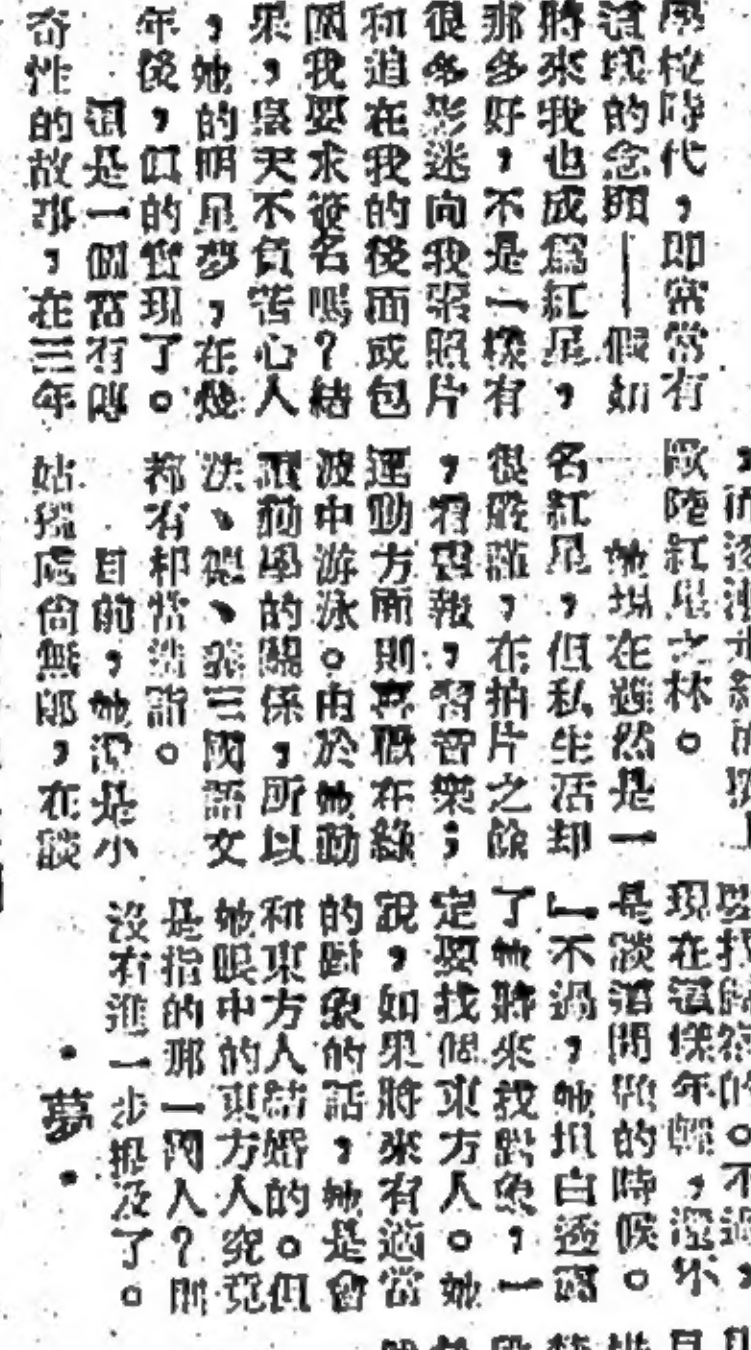 學校時代，即常常有
這樣的念頭——假如
將來我也成為紅星，
那多好，不是一樣有
很多影迷向我索照片
和追在我的後面或包
圍我要求簽名嗎？結
果，皇天不負苦心人
，她的明星夢，在幾
年後，真的實現了。
這是一個富有傳
奇性的故事，在三年
紅星之林。
她現在雖然是一
名紅星，但私生活却
很嚴謹，在拍片之餘
，看書報，習音樂；
運動方面則喜歡在綠
波中游泳。由於她勤
的關係，所以
法、德、英三國語文
都有相當造詣。
目前，她還是小
姑獨處尚無郎，在談
不過，
現在這樣年輕，還不
是談這問題的時候。
」不過，她坦白透露
了她將來找對象，一
定要找個東方人。她
說，如果將來有適當
的對象的話，她是會
和東方人結婚的。但
她眼中的東方人究竟
是指的那一國人？則
沒有進一步提及了。
・夢・